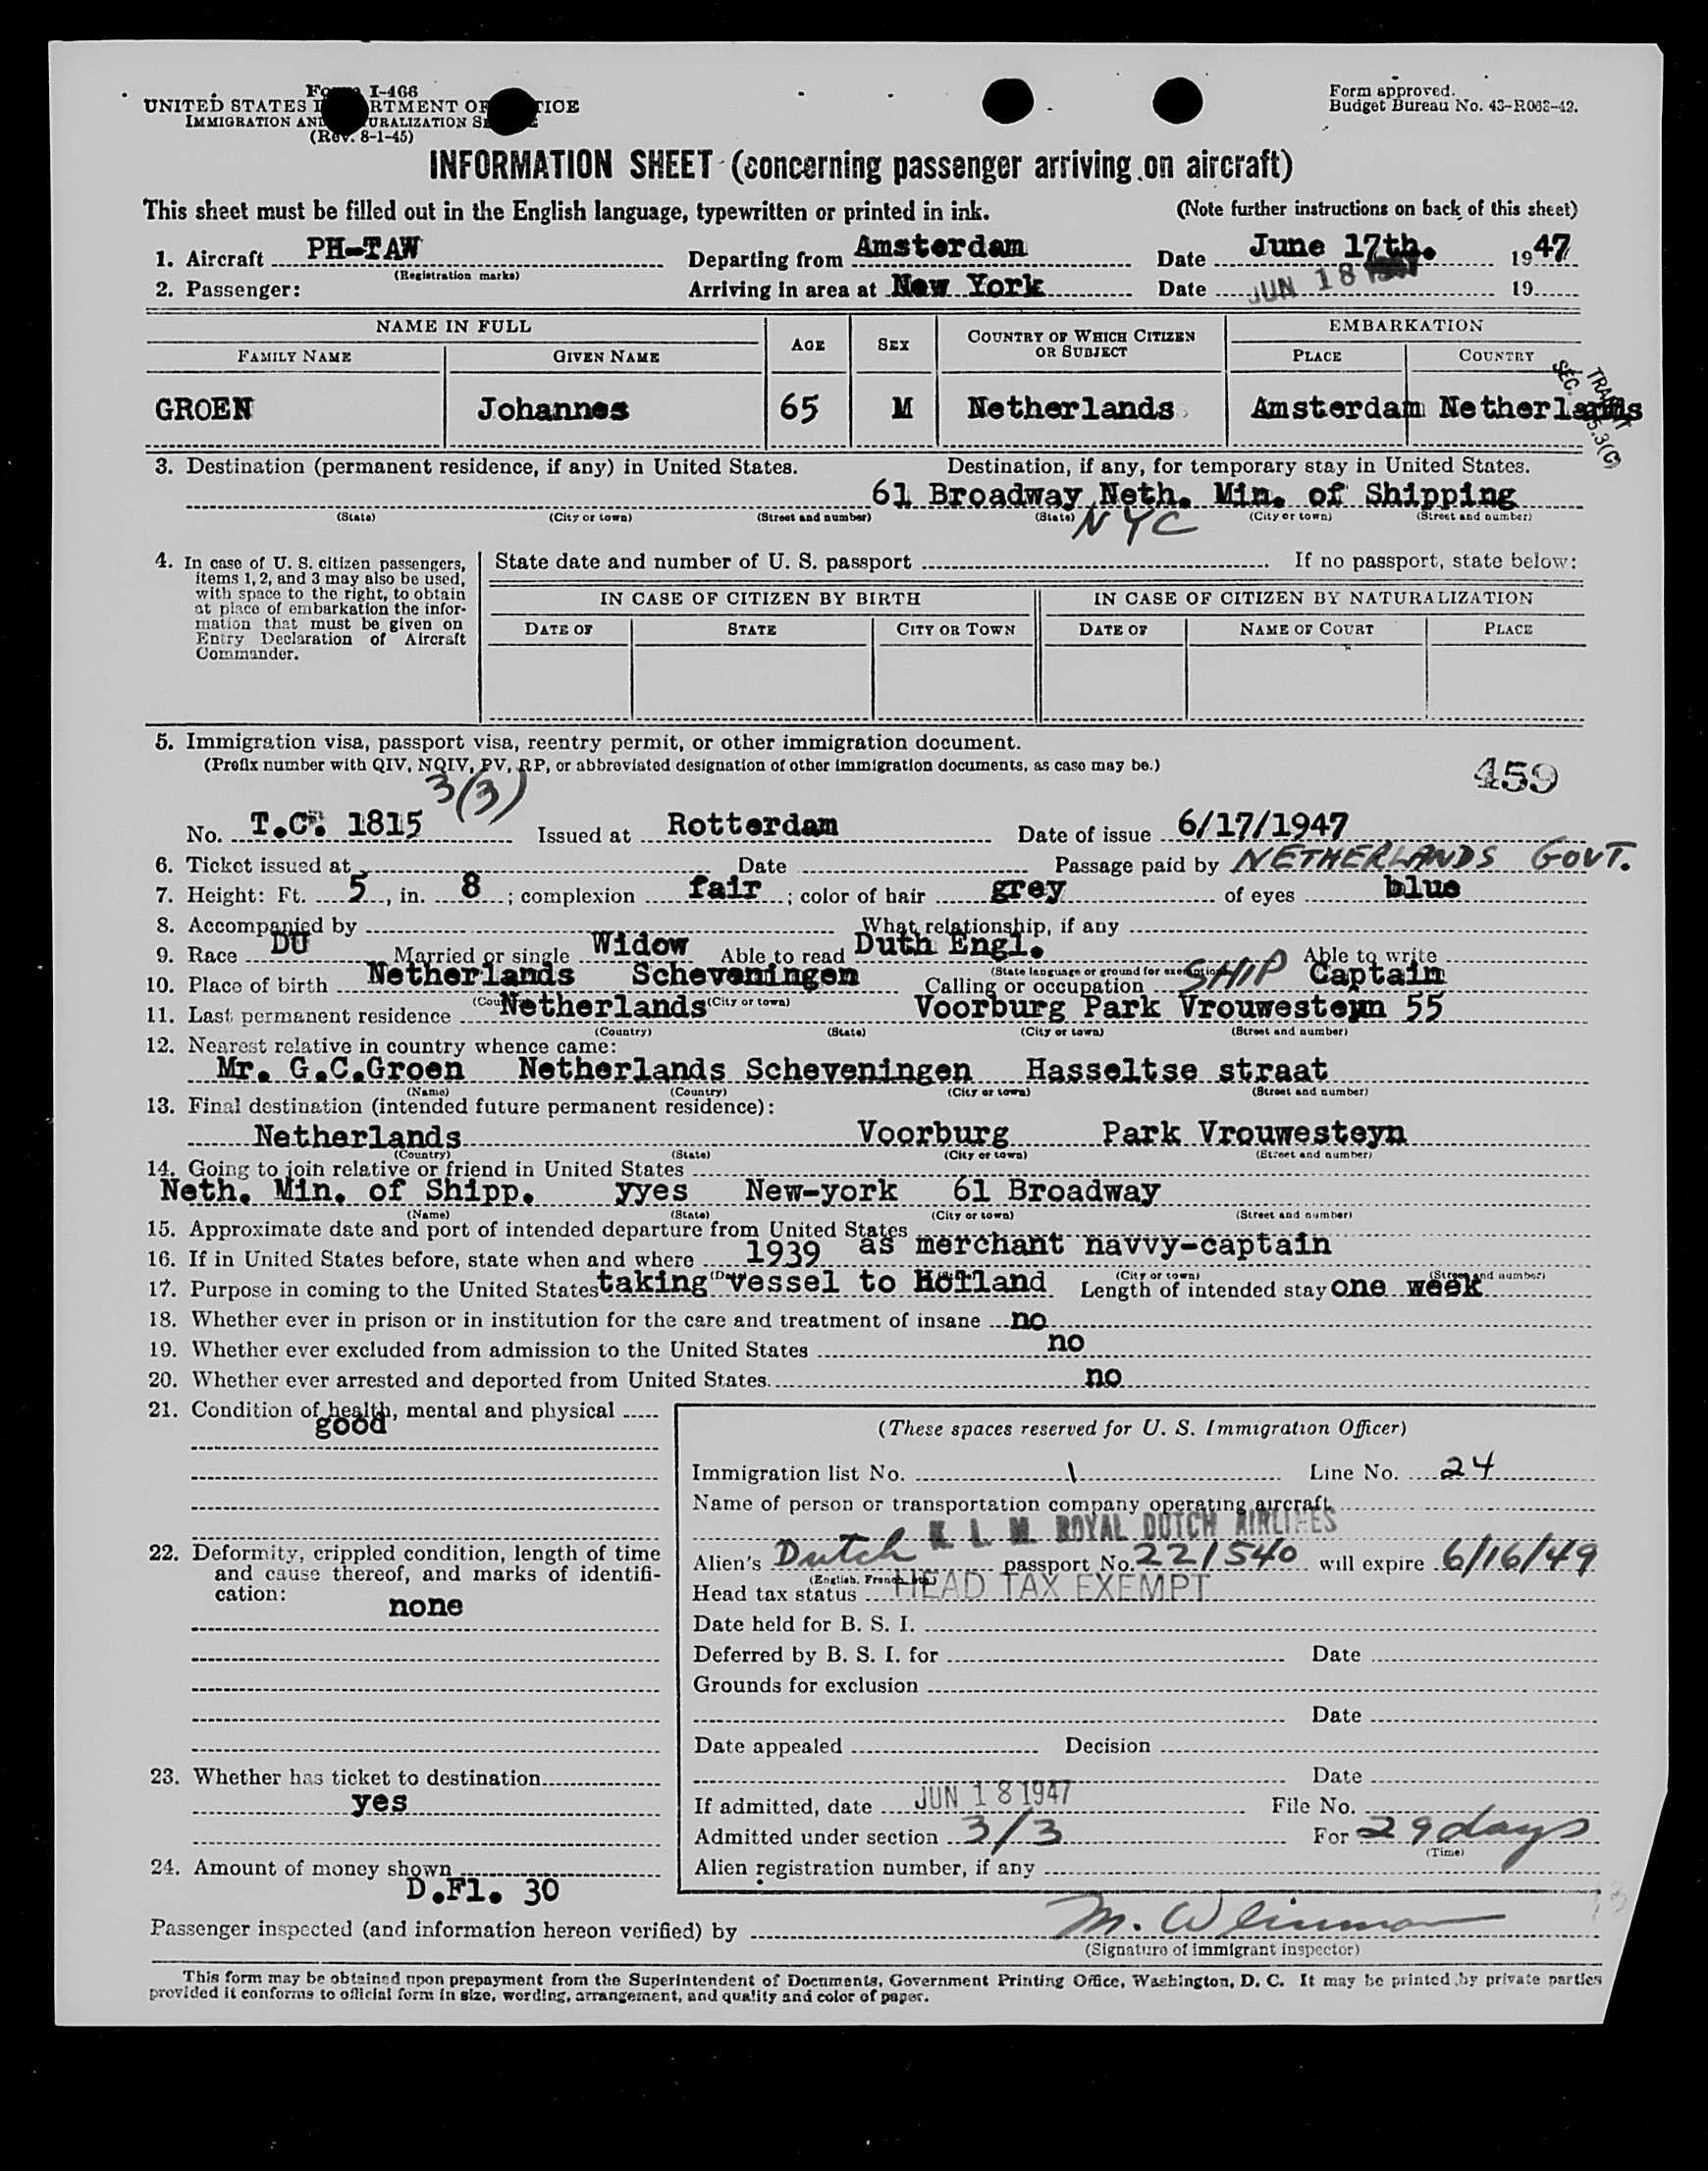 Form I-466
UNITED STATES DEPARTMENT OF JUSTICE
IMMIGRATION AND NATURALIZATION SERVICE
(Rev. 8-1-45)
Form approved.
Budget Bureau No. 43-R063-42.
INFORMATION SHEET (concerning passenger arriving on aircraft)
This sheet must be filled out in the English language, typewritten or printed in ink. (Note further instructions on back of this sheet)
1. Aircraft PH-TAW Departing from Amsterdam Date June 17th. 1947
(Registration marks)
2. Passenger: Arriving in area at New York Date JUN 18 1947 19
NAME IN FULL
FAMILY NAME GIVEN NAME AGE SEX COUNTRY OF WHICH CITIZEN OR SUBJECT
EMBARKATION
PLACE COUNTRY
GROEN Johannes 65 M Netherlands Amsterdam Netherlands
TRANSIT
SEC. 3(C)
3. Destination (permanent residence, if any) in United States. Destination, if any, for temporary stay in United States.
61 Broadway Neth. Min. of Shipping
(State) (City or town) (Street and number) (State) (City or town) (Street and number)
NYC
4. In case of U. S. citizen passengers, items 1, 2, and 3 may also be used, with space to the right, to obtain at place of embarkation the information that must be given on Entry Declaration of Aircraft Commander.
State date and number of U. S. passport If no passport, state below:
IN CASE OF CITIZEN BY BIRTH IN CASE OF CITIZEN BY NATURALIZATION
DATE OF STATE CITY OR TOWN DATE OF NAME OF COURT PLACE
5. Immigration visa, passport visa, reentry permit, or other immigration document.
(Prefix number with QIV, NQIV, PV, RP, or abbreviated designation of other immigration documents, as case may be.)
459
3(3)
No. T.C. 1815 Issued at Rotterdam Date of issue 6/17/1947
6. Ticket issued at Date Passage paid by NETHERLANDS GOVT.
7. Height: Ft. 5, in. 8; complexion fair; color of hair grey of eyes blue
8. Accompanied by What relationship, if any
9. Race DU Married or single Widow Able to read Duth Engl. Able to write
(State language or ground for exemption)
10. Place of birth Netherlands Scheveningen Calling or occupation SHIP Captain
(Country) (City or town)
11. Last permanent residence Netherlands Voorburg Park Vrouwesteyn 55
(Country) (State) (City or town) (Street and number)
12. Nearest relative in country whence came:
Mr. G.C.Groen Netherlands Scheveningen Hasseltse straat
(Name) (Country) (City or town) (Street and number)
13. Final destination (intended future permanent residence):
Netherlands Voorburg Park Vrouwesteyn
(Country) (State) (City or town) (Street and number)
14. Going to join relative or friend in United States
Neth. Min. of Shipp. yyes New-york 61 Broadway
(Name) (State) (City or town) (Street and number)
15. Approximate date and port of intended departure from United States
16. If in United States before, state when and where 1939 as merchant navvy-captain
(Date) (City or town) (Street and number)
17. Purpose in coming to the United States taking vessel to Holland Length of intended stay one week
18. Whether ever in prison or in institution for the care and treatment of insane no
19. Whether ever excluded from admission to the United States no
20. Whether ever arrested and deported from United States. no
21. Condition of health, mental and physical
good
22. Deformity, crippled condition, length of time and cause thereof, and marks of identification:
none
23. Whether has ticket to destination
yes
24. Amount of money shown
D.Fl. 30
(These spaces reserved for U. S. Immigration Officer)
Immigration list No. 1 Line No. 24
Name of person or transportation company operating aircraft
K L M ROYAL DUTCH AIRLINES
Alien's Dutch passport No. 221540 will expire 6/16/49
(English, French, etc.)
Head tax status HEAD TAX EXEMPT
Date held for B. S. I.
Deferred by B. S. I. for Date
Grounds for exclusion
Date
Date appealed Decision
Date
If admitted, date JUN 18 1947 File No.
Admitted under section 3/3 For 29 days
(Time)
Alien registration number, if any
Passenger inspected (and information hereon verified) by
(Signature of immigrant inspector)
This form may be obtained upon prepayment from the Superintendent of Documents, Government Printing Office, Washington, D. C. It may be printed by private parties
provided it conforms to official form in size, wording, arrangement, and quality and color of paper.